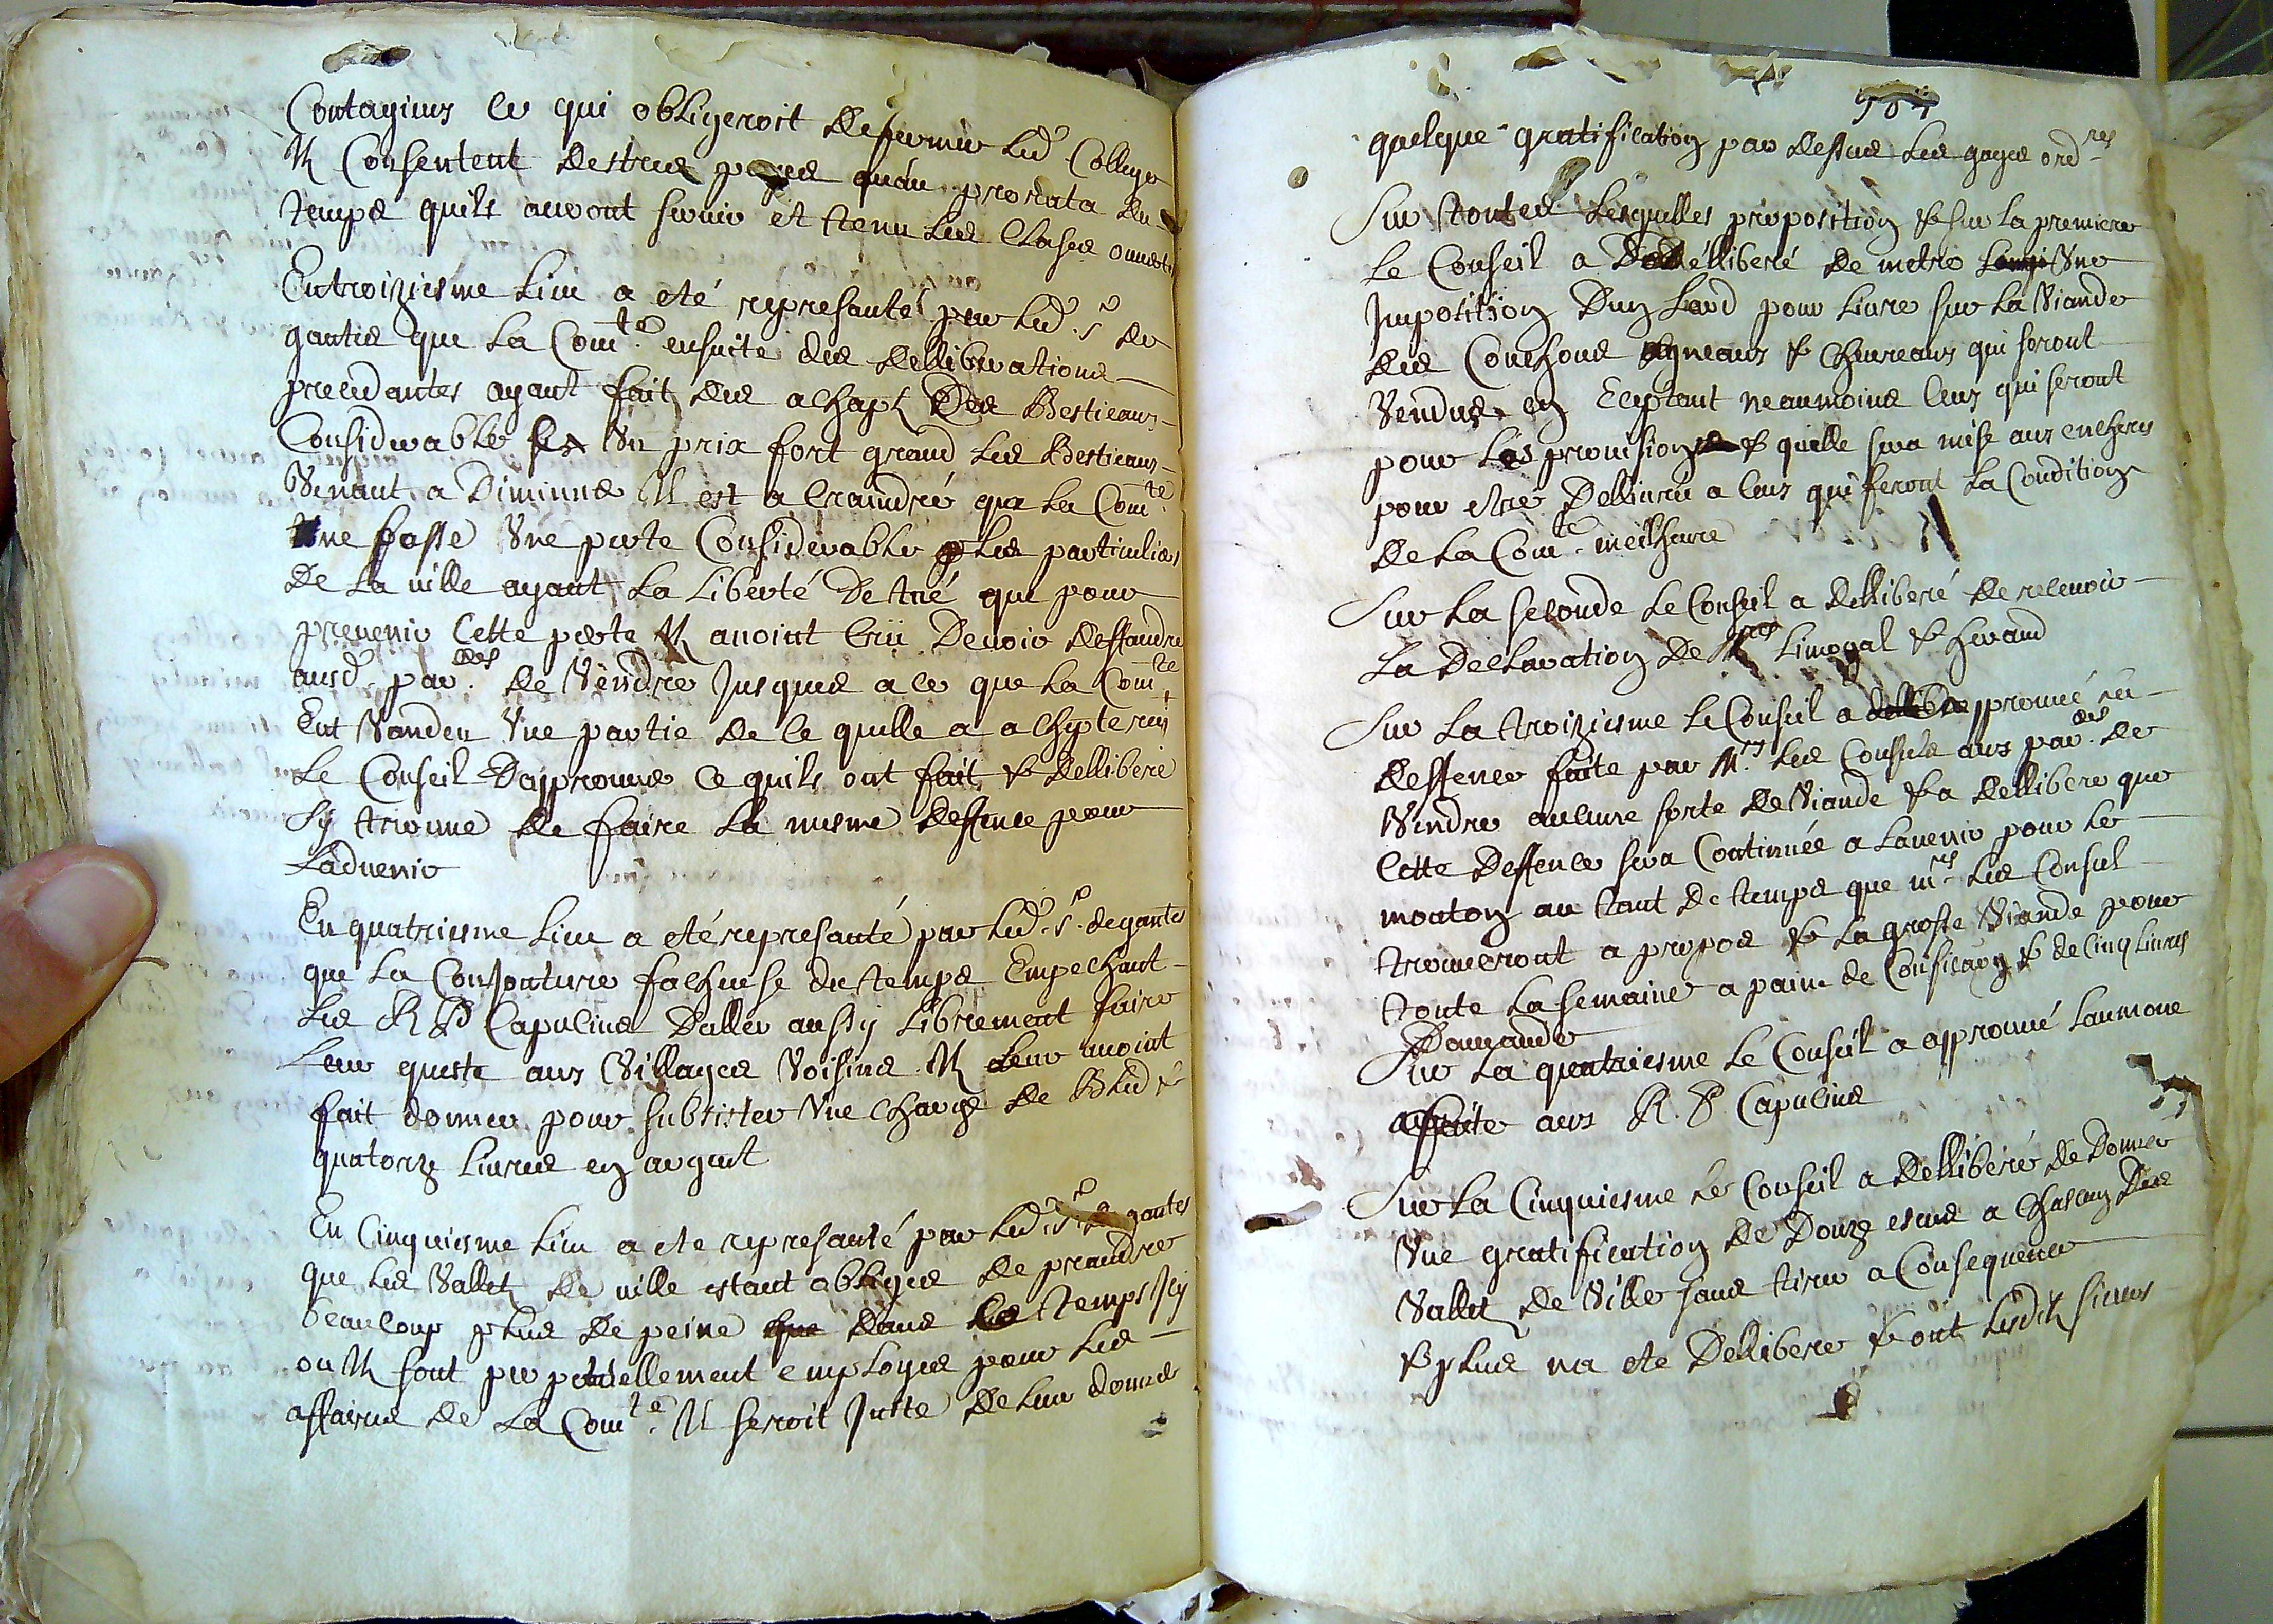 Contagieus ce qui obligeroit de fermer led. College
Ils Consentent destres payes qu'au prorata du
temps quils auront servir et tenu les Classes ouvertes
En troiziesme lieu a eté represanté par led. Sr de
gantes que la Comte. ensuite des deliberations
precedantes ayant fait des achapts Des Bestieaux
Considerables Un prix fort grand les Bestieaux
Venant a Diminuer Il est a Craindre que la Comte.
ne fasse Une perte Considerable les particuliers
De la ville ayant la Liberté De tué que pour
prevenir Cette perte Ils avoint Creü Devoir deffandre
ausd. par.des de Vendre Jusques a ce que la Comte.
Eut Vandeu Une partie de ce quelle a achepte
Le Conseil D'approuver Ce quils ont fait & Dellibere
Sy trouve de faire la mesme deffence pour
Ladvenir
En quatriesme lieu a eté represanté par led. Sr. de gantes
que la Conjonture facheuse du temps Empechant
les R P Capucins Daller aussy Librement faire
Leur queste aux Villages Voisins Ils leur avoint
fait donner pour subsister Une Charge de Bled &
quatorze Livres en argent
En Cinquiesme lieu a ete represanté par led. Sr. de gantes
que les Vallets de ville estant obliges de prandre
beaucoup plus de peine dans les temps Icy
ou Ils sont perpetuellement employes pour les
affaires de la Comte. Il seroit Juste de leur donner
904
quelque gratification par dessus les gages ord.res
Sur toutes Lesquelles proposition & sur la premiere
Le Conseil a Dellibéré de metre Une
Imposition Dun Liard pour Livre sur la Viande
des Couchons agneaux & Chevreaux qui seront
Vendus en Eceptant neaumoins Ceux qui seront
pour les provisions & quelle sera mise aux encheres
pour estre Dellivrée a Ceux qui feront la Condition
de la Comte. meilheure
Sur la seconde le Conseil a delliberé de recevoir
la Declaration de Mrs Limogal & heraud
Sur la troiziesme le Conseil a approuvé la
deffence faite par Mrs. les Consuls aux par.des de
Vendre aucune sorte de Viande & a dellibere que
Cette Deffence sera Continuée a Lavenir pour le
mouton au tant de temps que mrs les Consul
trouveront a propos & la grosse Viande pour
toute la semaine a paine de Confication & de Cinq Livres
Damande
Sur la quatriesme le Conseil a approuvé Laumone
faite aux R. P. Capucins
Sur la Cinquiesme le Conseil a Delliberé de Donner
Une gratification de Douze escus a Chascun Des
Vallets de Ville sans tirer a Consequence
& plus na ete Dellibere & ont lesdits sieurs